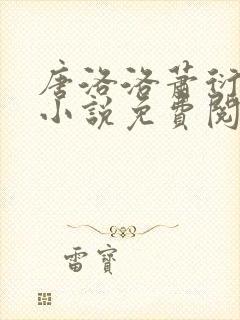 唐洛洛蕭衍
小說免費閱
雷寶